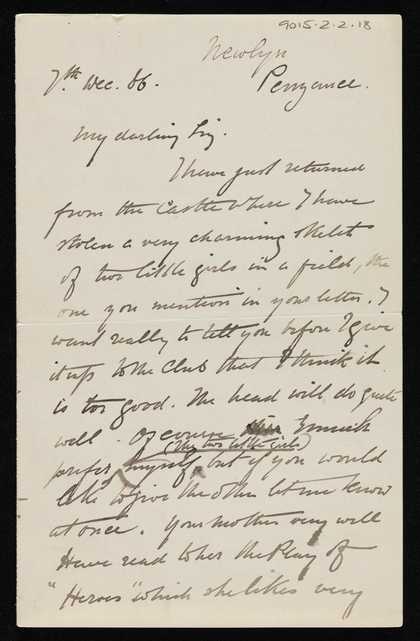 9015-2-2-18
Newlyn
7th Dec. 86. Penzance.
My darling Liz.
I have just returned
from the Castle where I have
stolen a very charming sketch
of two little girls in a field, the
one you mention in your letter. I
want really to tell you before I give
it up to the Club that I think it
is too good. The head will do quite
well. Of course I much
(the two little girls)
prefer, myself, but if you would
like to give the other let me know
at once. Your mother very well
Have read to her the Play of
"Heroes" which she likes very